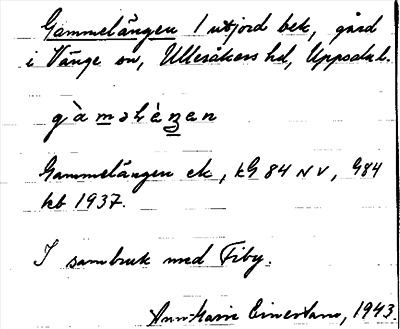 Gammelängen 1 utjord bek, gård
i Vänge sn, Ulleråkers hd, Uppsala l.
gàməlèŋen
Gammelängen ek, kG 84 NV, G84
hb 1937.
I sambruk med Fiby.
Ann-Marie Einerstam, 1943.